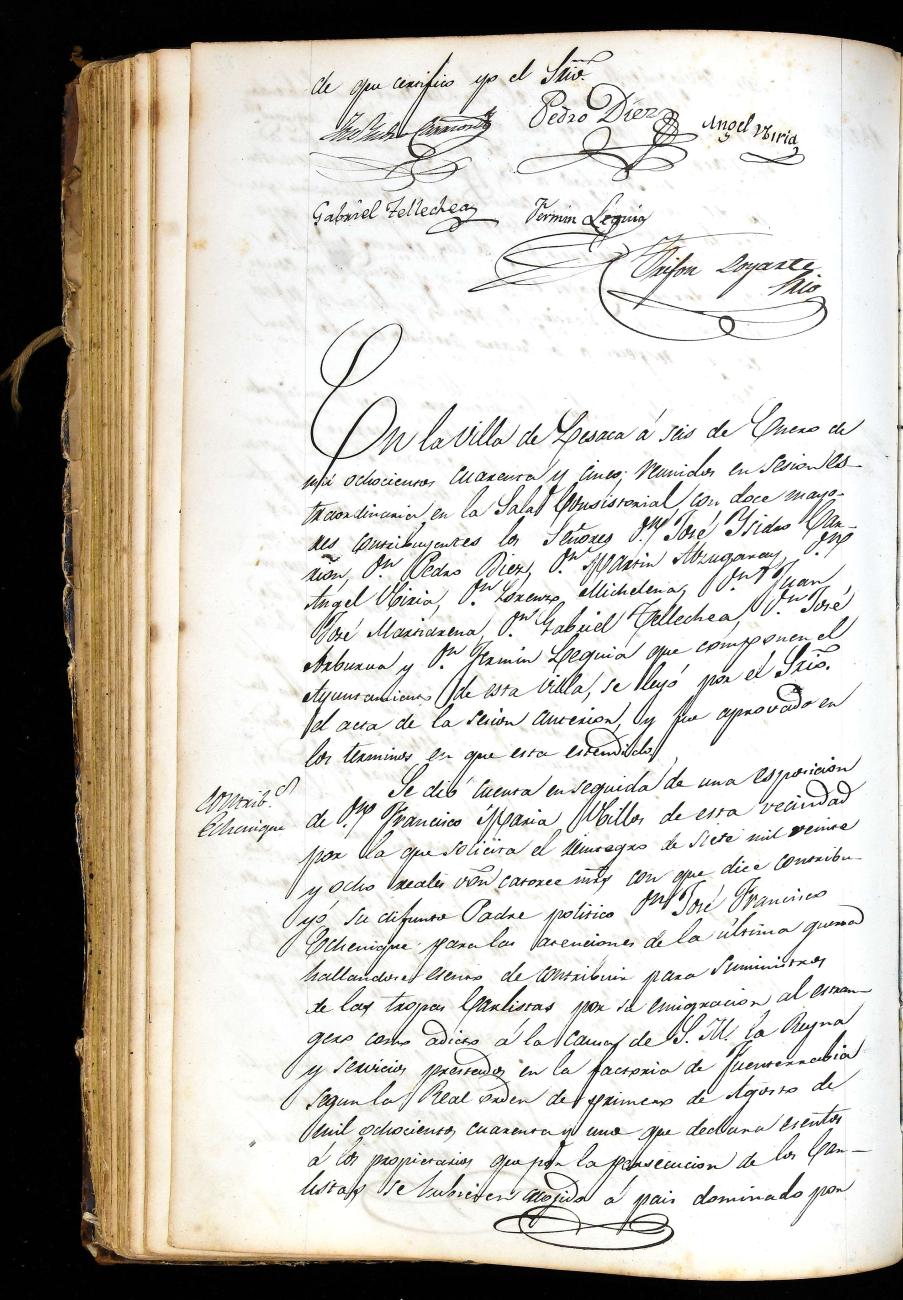 de que certifico yo el Srio.
Pedro Diez
Angel Yriria
Gabriel Tellechea
Fermin Leguia
Trifon Loyarte
Srio
En la Villa de Lesaca á seis de Enero de
mil ochocientos cuarenta y cinco: reunidos en sesion es-
traordinaria en la Sala Consistorial con doce mayo-
res contribuyentes los Señores Dn. José Ysidro Can-
rion, Dn. Pedro Diez, Dn. Martin Alzugaray, Dn.
Angel Yriria, Dn. Lorenzo Michelena, Dn. Juan
José Marichrena, Dn. Gabriel Tellechea, Dn. José
Arburua y Dn. Fermin Leguia que componen el
Ayuntamiento de esta Villa, se leyó por el Srio.
el acta de la sesion anterior, y fue aprovado en
los terminos en que esta estendido.
Contrib.
Echenique
Se dió cuenta en seguida de una esposicion
de Dn. Francisco Maria de esta vecindad
por la que solicita el reintegro de siete mil veinte
y ocho reales von catorce mrs con que dice contribu-
yó su difunto Padre politico Dn. José Francisco
Echenique para las atenciones de la última guerra
hallandose esento de contribuir para suministros
de las tropas Carlistas por su emigracion al estran-
gero como adicto á la causa de S. M. la Reyna
y servicios prestados en la factoria de Fuenterrabia
segun la Real orden de primero de Agosto de
mil ochocientos cuarenta y uno que declara esentos
á los propietarios que por la persecucion de los Car-
listas se hubiesen acojido á pais dominado por